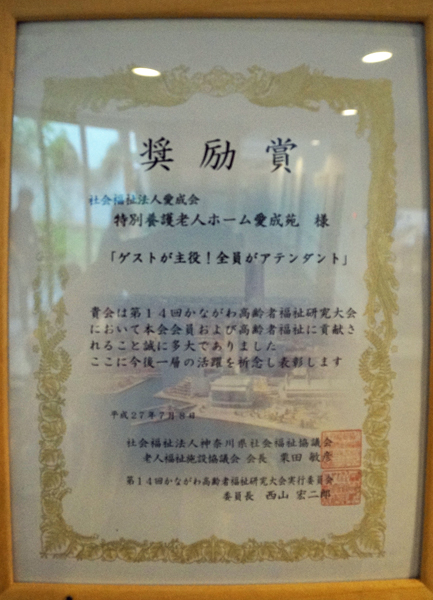 奨励賞
社会福祉法人愛成会
特別養護老人ホーム愛成苑 様
「ゲストが主役!全員がアテンダント」
貴会は第14回かながわ高齢者福祉研究大会
において本会会員および高齢者福祉に貢献さ
れること誠に多大でありました
ここに今後一層の活躍を祈念し表彰します
平成27年7月8日
社会福祉法人神奈川県社会福祉協議会
老人福祉施設協議会 会長 栗田 敏彦
第14回かながわ高齢者福祉研究大会実行委員会
委員長 西山 宏二郎